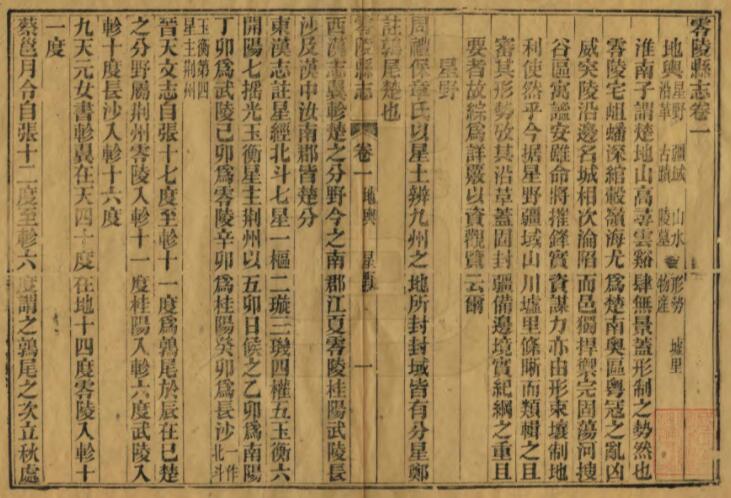 零陵縣志卷一
地輿 星野 疆域 山水 形勢 墟里
沿革 古蹟 陵墓 物產
淮南子謂楚地山高尋雲谿肆無景蓋形制之勢然也
零陵宅岨蟠深綰轂嶺海尤爲楚南奧區粵冠之亂凶
威突陵沿邊名城相次淪陷而邑獨捍禦完固蕩河搜
谷區寓謐安雖命將摧鋒實資謀力亦由形束壤制地
利使然乎今据星野疆域山川墟里條晰而類輯之且
審其形勢攷其沿革蓋固封疆備邊境實紀綱之重且
要者故綜爲詳覈以資觀覽云爾
星野
周禮保章氏以星土辨九州之地所封封域皆有分星鄭
註鶉尾楚也
零陵縣志 卷一 地輿 星野 一
西漢志翼軫楚之分野今之南郡江夏零陵桂陽武陵長
沙及漢中汝南郡皆楚分
東漢志註星經北斗七星一樞二璇三璣四權五玉衡六
開陽七搖光玉衡星主荆州以五卯日候之乙卯爲南陽
丁卯爲武陵己卯爲零陵辛卯爲桂陽癸卯爲長沙 一作北斗
玉衡第四星主荆州
晉天文志自張十七度至軫十一度爲鶉尾於辰在巳楚
之分野屬荆州零陵入軫十一度桂陽入軫六度武陵入
軫十度長沙入軫十六度
九天元女書軫翼在天四十度在地十四度零陵入軫十
一度
蔡邕月令自張十二度至軫六度謂之鶉尾之次立秋處